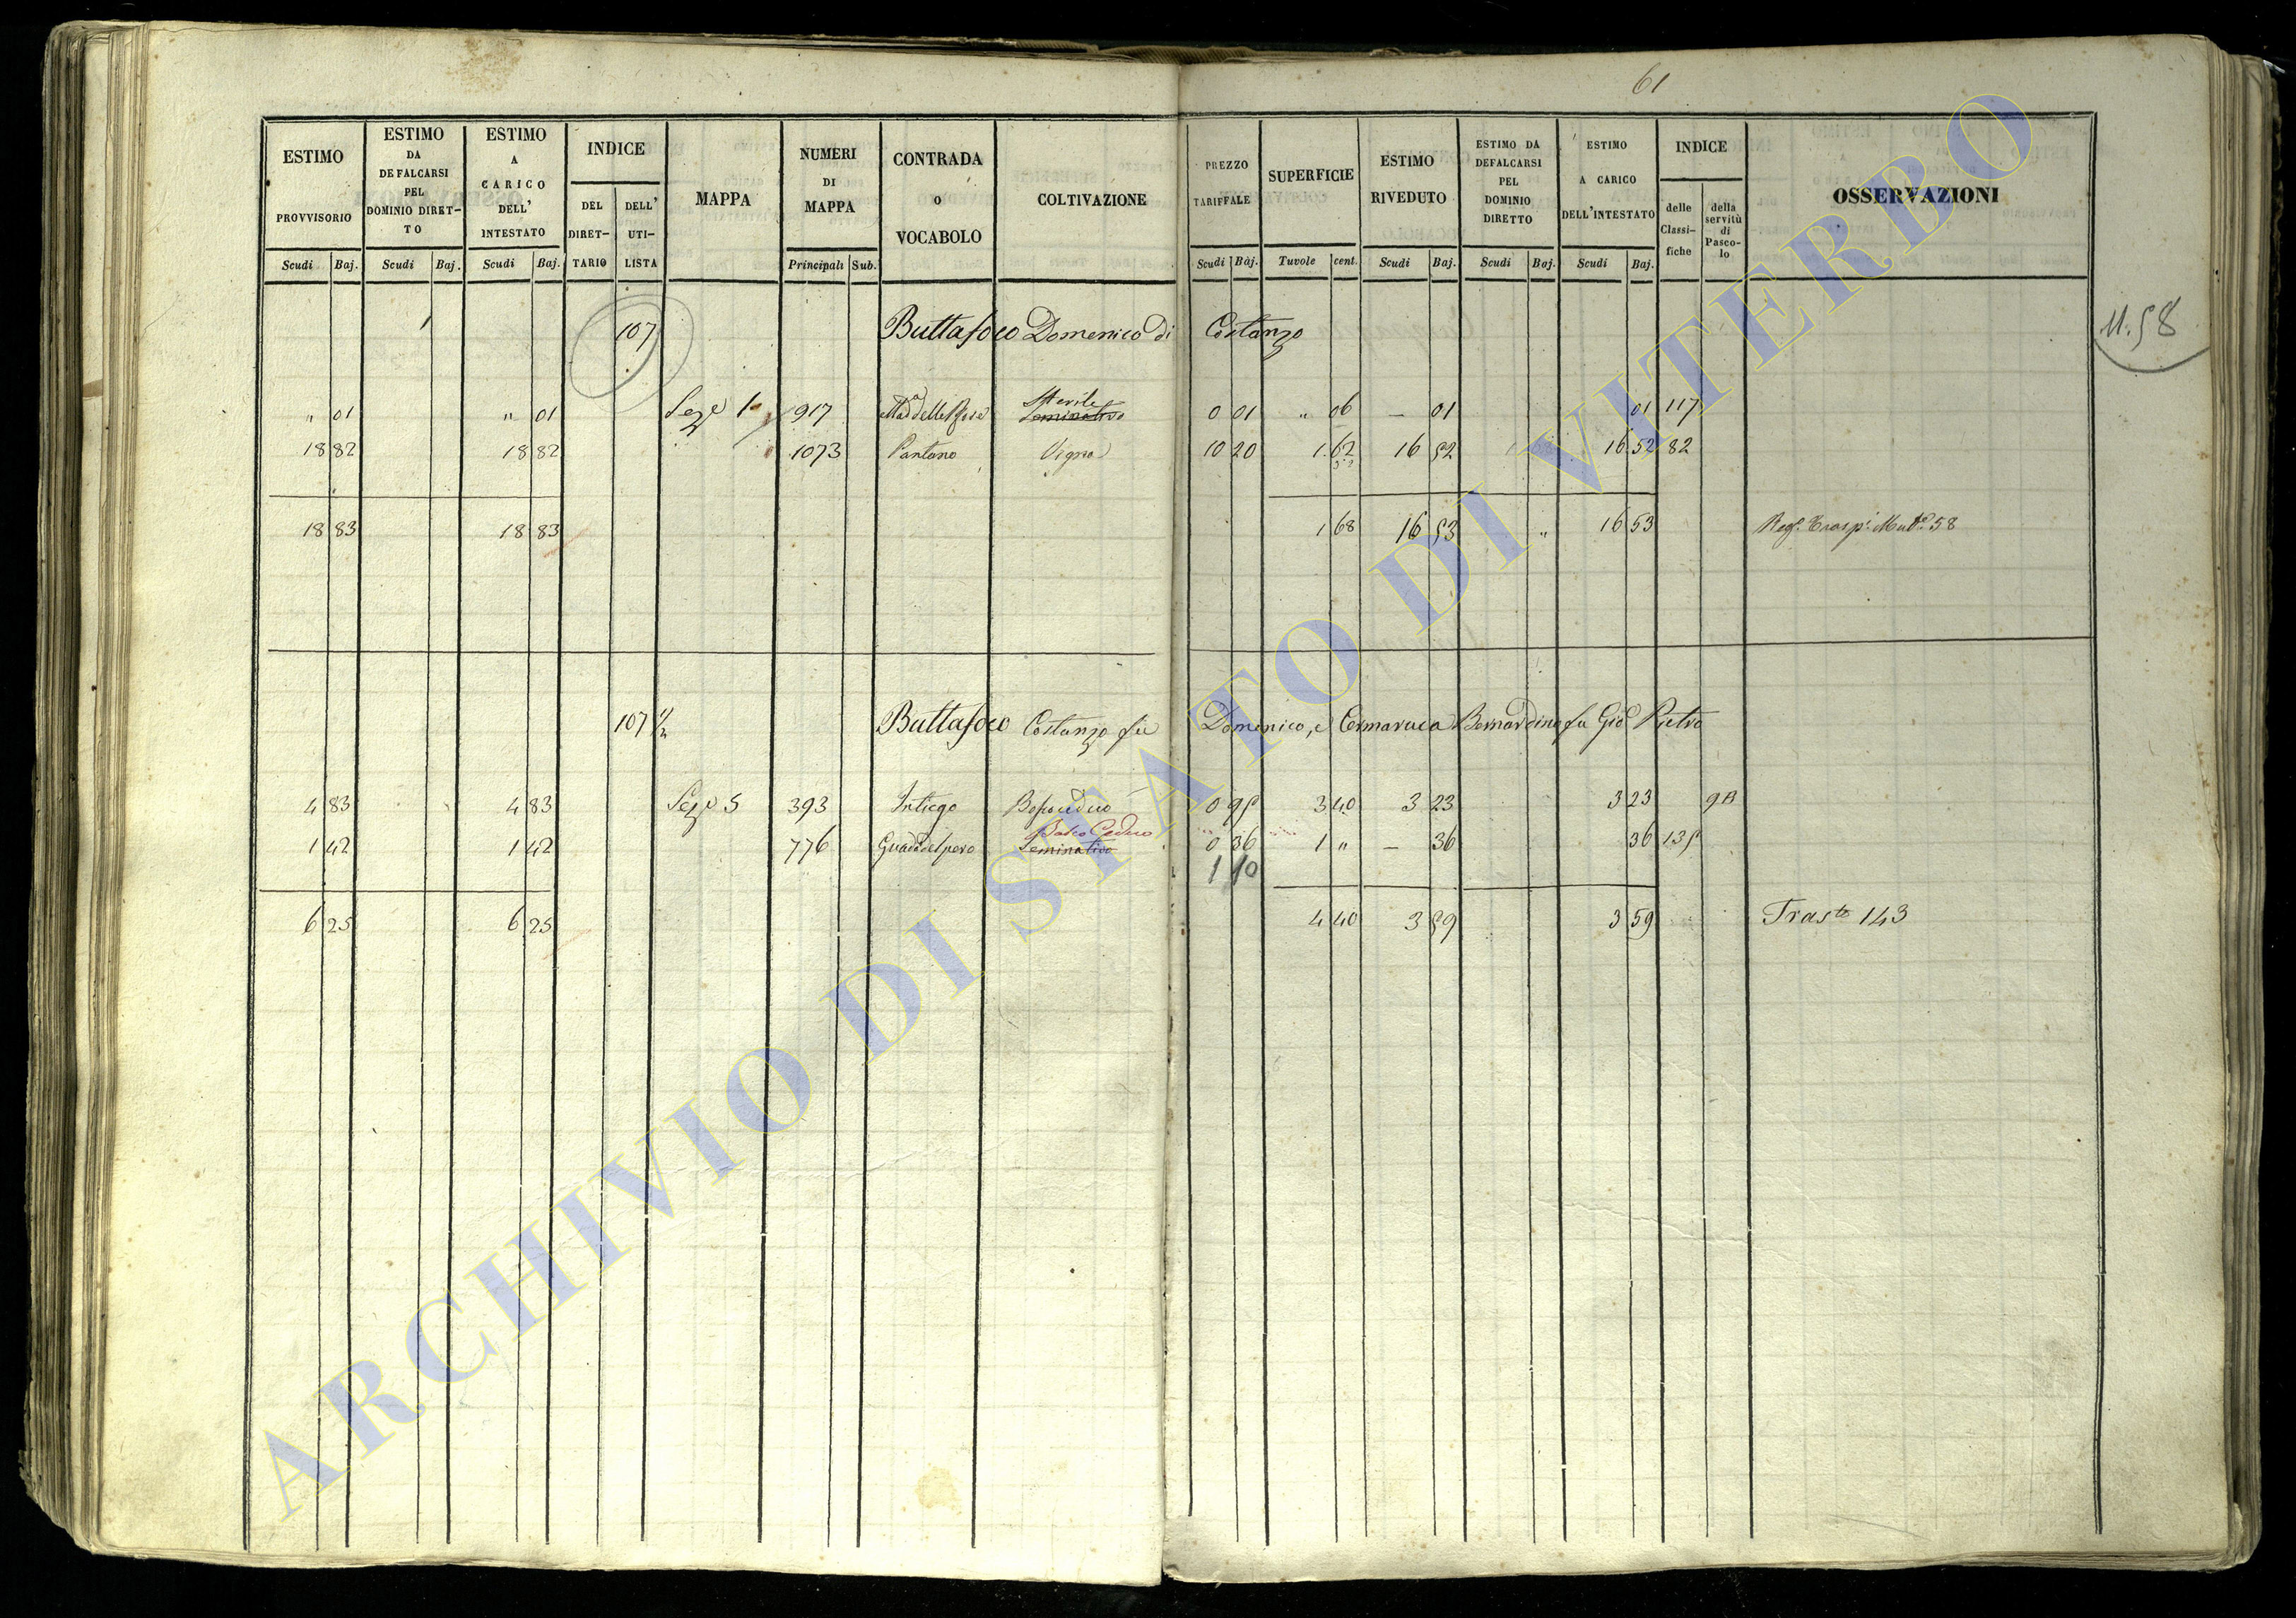 61
ESTIMO PROVVISORIO Scudi Baj.
ESTIMO DA DEFALCARSI PEL DOMINIO DIRET-TO Scudi Baj.
ESTIMO A CARICO DELL' INTESTATO Scudi Baj.
INDICE DEL DIRET-TARIO DELL' UTI-LISTA
MAPPA
NUMERI DI MAPPA Principali Sub.
CONTRADA O VOCABOLO
COLTIVAZIONE
PREZZO TARIFFALE Scudi Baj.
SUPERFICIE Tavole cent.
ESTIMO RIVEDUTO Scudi Baj.
ESTIMO DA DEFALCARSI PEL DOMINIO DIRETTO Scudi Baj.
ESTIMO A CARICO DELL'INTESTATO Scudi Baj.
INDICE delle Classi-fiche della servitù di Pasco-lo
OSSERVAZIONI
107 Buttafoco Domenico di Costanzo
M. 58
Sterile
" 01 " 01 Seze 1a 917 Mad delle Rose Seminativo 0 01 " 06 — 01 01 117
18 82 18 82 1073 Pantano Vigna 10 20 1 62 16 52 16 52 82
18 83 18 83 1 68 16 53 " 16 53 Rege Trasp: Mut. 58
107 1/2 Buttafoco Costanzo fu Domenico, e Bernardino fu Gio Pietro
4 83 4 83 Seze 5 393 Intiego Bosco ceduo 0 95 3 40 3 23 3 23 9B
Bosco Ceduo
1 42 1 42 776 Seminativo 0 36 1 " — 36 36 135
1 10
6 25 6 25 4 40 3 59 3 59 Trasto 143
ARCHIVIO DI STATO DI VITERBO